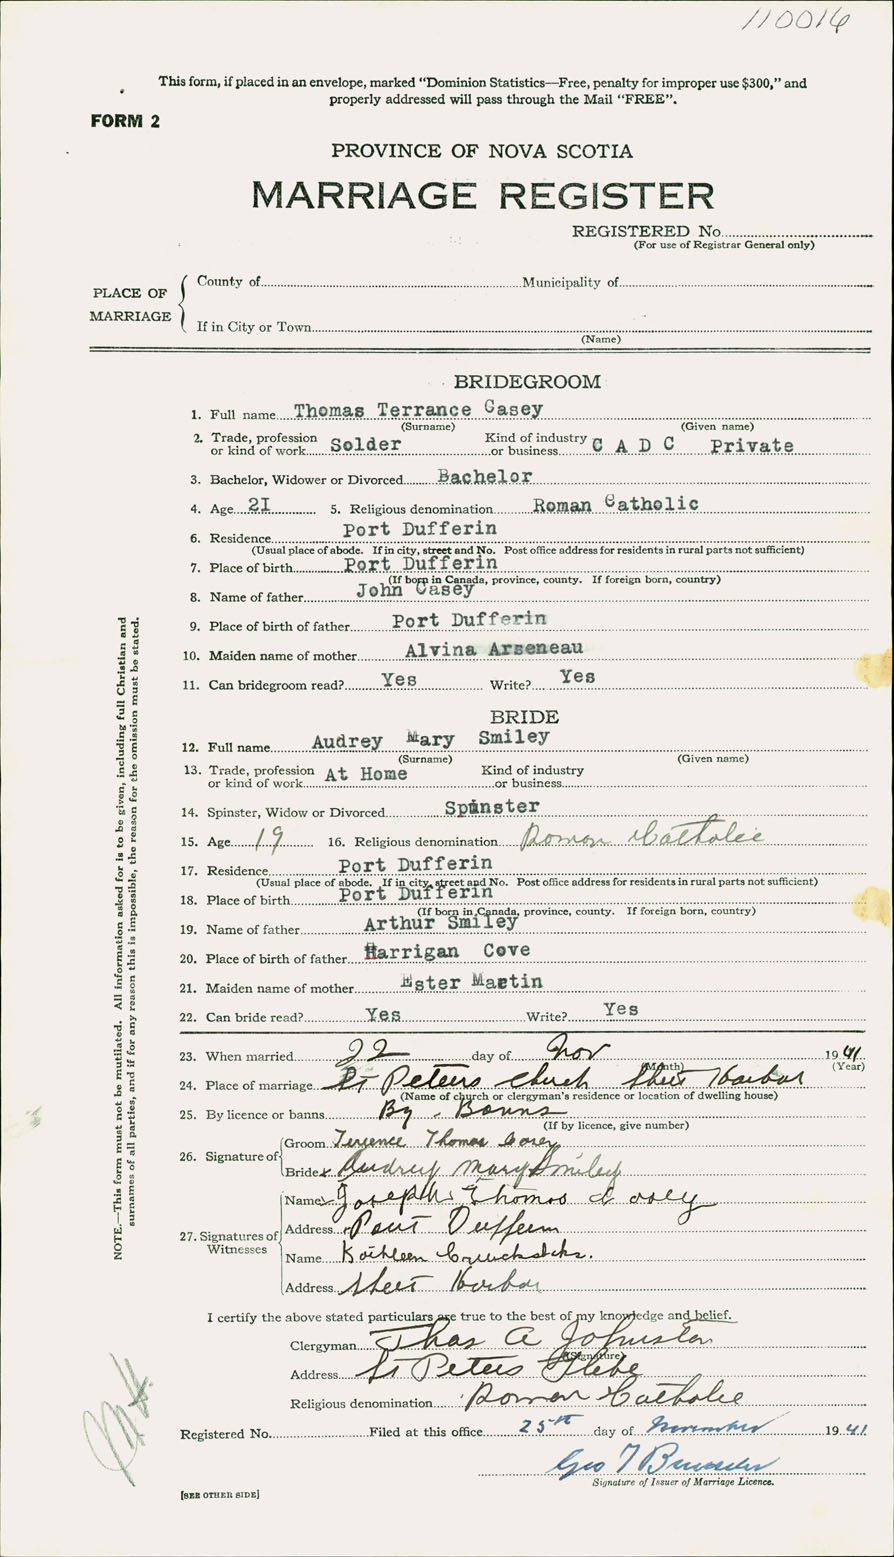 110016
This form, if placed in an envelope, marked “Dominion Statistics—Free, penalty for improper use $300,” and
properly addressed will pass through the Mail “FREE”.
FORM 2
PROVINCE OF NOVA SCOTIA
MARRIAGE REGISTER
REGISTERED No.
(For use of Registrar General only)
PLACE OF MARRIAGE
County of Municipality of
If in City or Town
(Name)
BRIDEGROOM
1. Full name Thomas Terrance Casey
(Surname) (Given name)
2. Trade, profession or kind of work Solder Kind of industry or business C A D C Private
3. Bachelor, Widower or Divorced Bachelor
4. Age 2I 5. Religious denomination Roman Catholic
6. Residence Port Dufferin
(Usual place of abode. If in city, street and No. Post office address for residents in rural parts not sufficient)
7. Place of birth Port Dufferin
(If born in Canada, province, county. If foreign born, country)
8. Name of father John Casey
9. Place of birth of father Port Dufferin
10. Maiden name of mother Alvina Arseneau
11. Can bridegroom read? Yes Write? Yes
BRIDE
12. Full name Audrey Mary Smiley
(Surname) (Given name)
13. Trade, profession or kind of work At Home Kind of industry or business
14. Spinster, Widow or Divorced Spinster
15. Age 19 16. Religious denomination Roman Catholic
17. Residence Port Dufferin
(Usual place of abode. If in city, street and No. Post office address for residents in rural parts not sufficient)
18. Place of birth Port Dufferin
(If born in Canada, province, county. If foreign born, country)
19. Name of father Arthur Smiley
20. Place of birth of father Harrigan Cove
21. Maiden name of mother Ester Martin
22. Can bride read? Yes Write? Yes
23. When married 22 day of Nov 1941
(Month) (Year)
24. Place of marriage St Peters Church Sheet Harbor
(Name of church or clergyman's residence or location of dwelling house)
25. By licence or banns By Banns
(If by licence, give number)
26. Signature of
Groom Terrence Thomas Casey
Bride x Audrey Mary Smiley
27. Signatures of Witnesses
Name x Joseph Thomas Casey
Address Port Dufferin
Name Kathleen
Address Sheet Harbor
I certify the above stated particulars are true to the best of my knowledge and belief.
Clergyman Thas A Johnston
(Signature)
Address St Peters Glebe
Religious denomination Roman Catholic
Registered No. Filed at this office 25th day of November 1941
Geo T
Signature of Issuer of Marriage Licence.
[SEE OTHER SIDE]
NOTE.—This form must not be mutilated. All information asked for is to be given, including full Christian and
surnames of all parties, and if for any reason this is impossible, the reason for the omission must be stated.